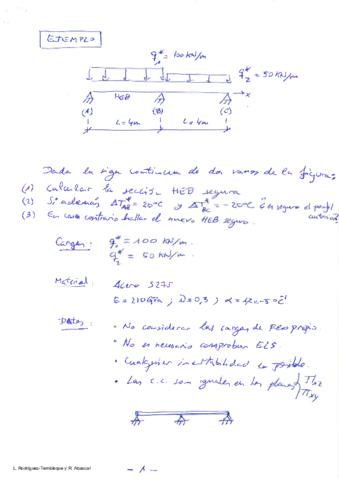 EJEMPLO
q₁* = 100 kN/m
q₂* = 50 kN/m
HEB
x
(A) (B) (C)
L = 4m L = 4m
Dada la viga continua de dos vanos de la figura:
(1) Calcular la sección HEB segura
(2) Si además ΔT*AB = 20°C y ΔT*BC = -20°C ¿es seguro el perfil anterior?
(3) En caso contrario hallar el nuevo HEB seguro.
Cargas: q₁* = 100 kN/m.
q₂* = 50 kN/m.
Material: Acero S275
E = 210 GPa; ν = 0,3; α =
Datos: • No considerar las cargas de peso propio.
• No es necesario comprobar ELS.
• Cualquier inestabilidad es posible.
• Las c.c. son iguales en los planos Πxz
Πxy
L. Rodríguez-Tembleque y R. Abascal
- 1 -